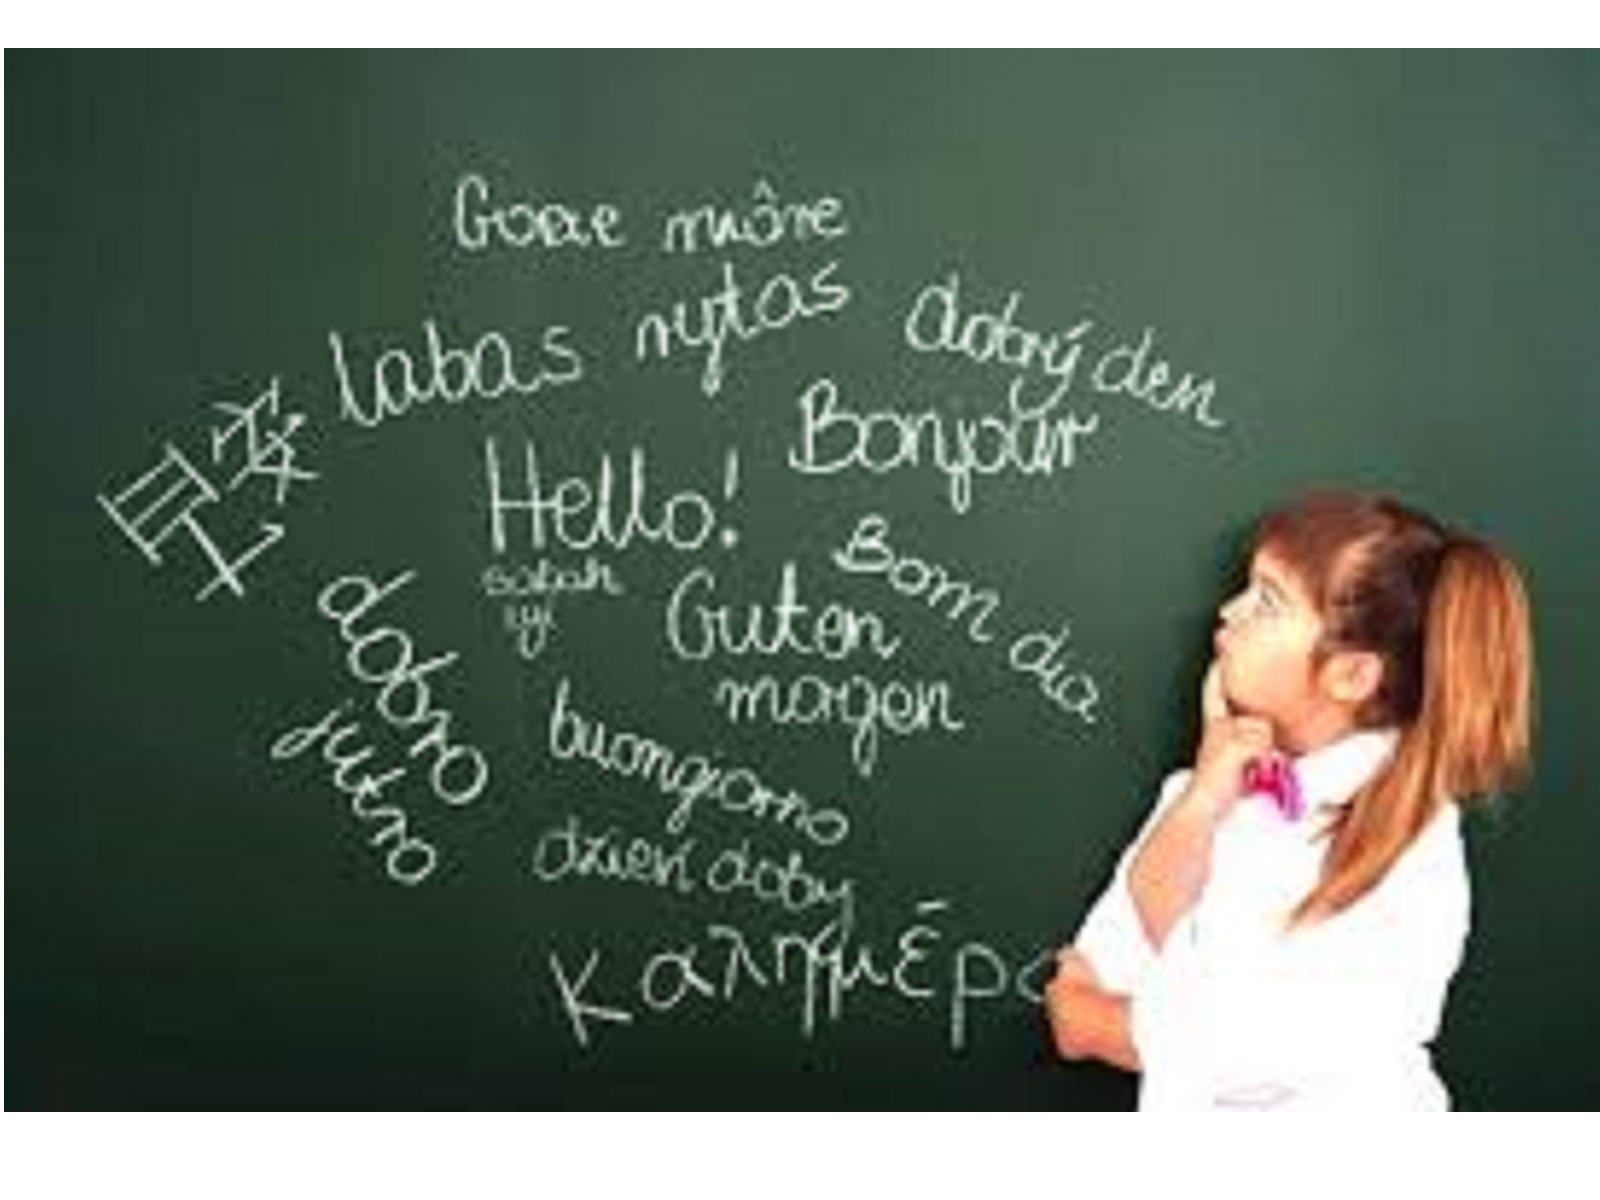 Goeie môre
labas rytas
dobrý den
早安
Bonjour
Hello!
Bom dia
Guten
magen
dobro
jutro
buongiorno
dzień doby
Καλημέρα